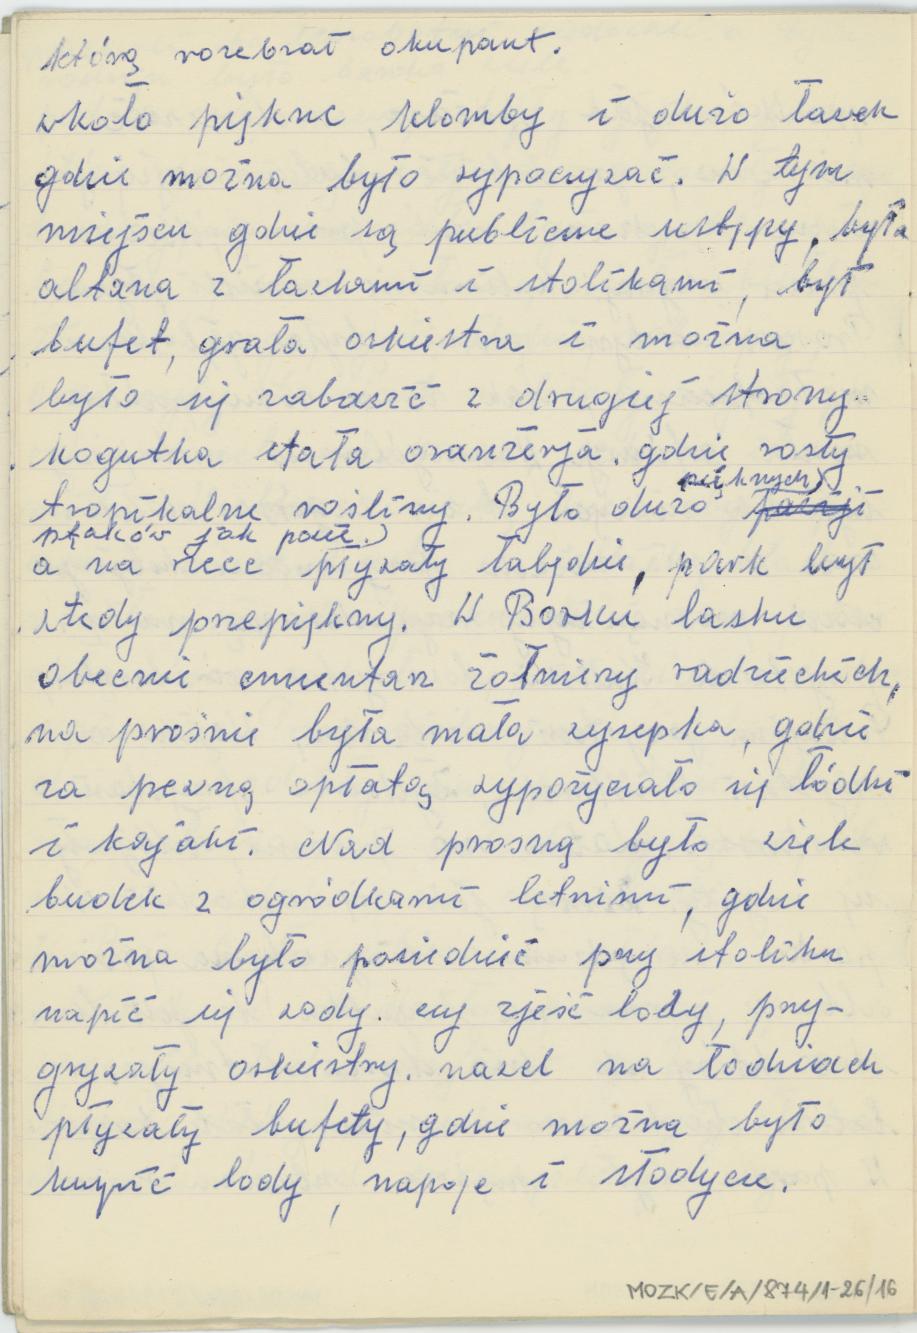 którą rozebrał okupant.
wkoło piękne, klomby i dużo ławek
gdzie można było wypoczywać. W tym
miejscu gdzie są publiczne ustępy, była
altana z ławkami i stolikami, był
bufet, grała orkiestra i można
było się zabawić z drugiej strony
kogutka stała oranżerja. gdzie rosły
tropikalne rośliny. Było dużo pięknych
ptaków jak pawi.
a na rzece pływały łabędzie, park był
wtedy przepiękny. W Borku lasku
obecnie cmentarz żołnierzy radzieckich,
na prośnie była mała wysepka, gdzie
za pewną opłatą wypożyczało się łódki
i kajaki. Nad prosną było wiele
budek z ogródkami letnimi, gdzie
można było posiedzieć przy stoliku
napić się wody. czy zjeść lody, przy-
grywały orkiestry. nawet na łodziach
pływały bufety, gdzie można było
kupić lody, napoje i słodycze.
MOZK/E/A/874/1-26/16